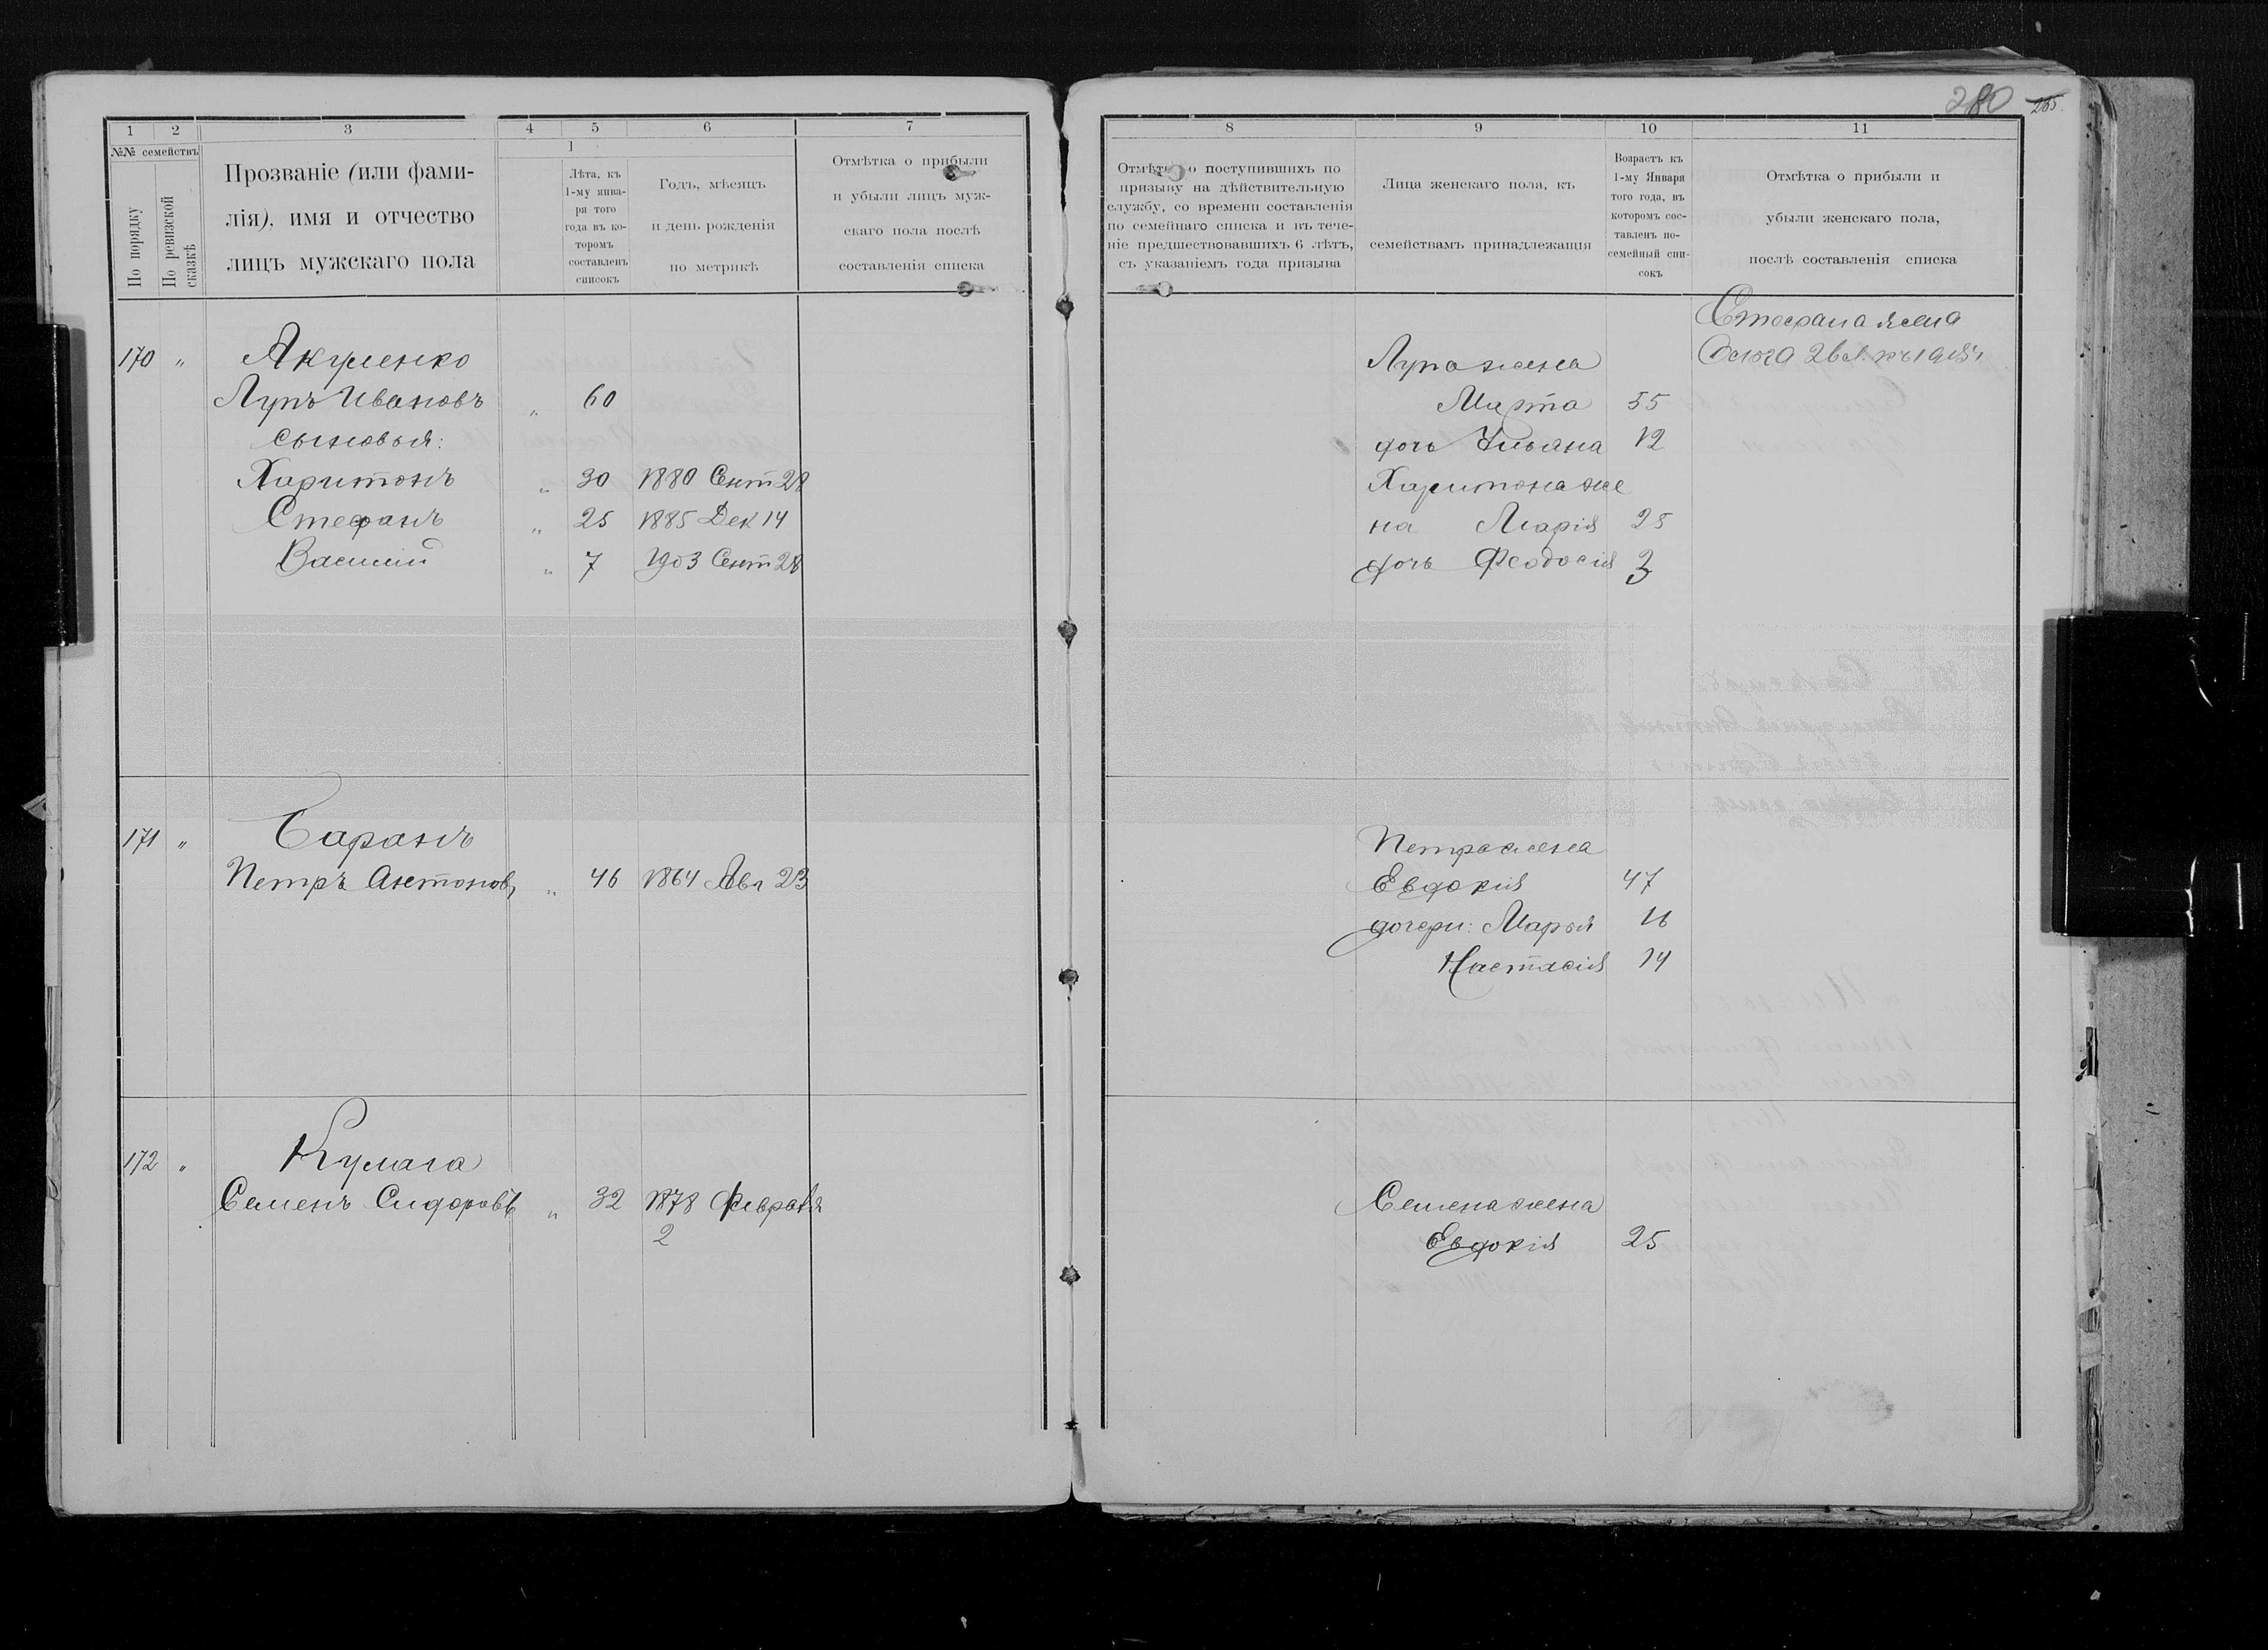 280
265.
1 2 3 4 5 6 7
№№ семействъ
По порядку
По ревизской сказкѣ
Прозваніе (или фами-
лія), имя и отчество
лицъ мужскаго пола
Лѣта, къ
1-му янва-
ря того
года въ ко-
торомъ
составленъ
списокъ
Годъ, мѣсяцъ
и день рожденія
по метрикѣ
Отмѣтка о прибыли
и убыли лицъ муж-
скаго пола послѣ
составленія списка
170 " Акуленко
Лупъ Ивановъ " 60
сыновья:
Харитонъ " 30 1880 Сент 28
Стефанъ " 25 1885 Дек 14
Василий " 7 1903 Сент 28
171 " Баранъ
Петръ Антонов, " 46 1864 Авг 23
172 " Кулага
Семенъ Сидоровъ " 32 1878 Февраля
2
8 9 10 11
Отмѣтка о поступившихъ по
призыву на дѣйствительную
службу, со времени составленія
по семейнаго списка и въ тече-
ніе предшествовавшихъ 6 лѣтъ,
съ указаніемъ года призыва
Лица женскаго пола, къ
семействамъ принадлежащія
Возрастъ къ
1-му Января
того года, въ
которомъ сос-
тавленъ по-
семейный спи-
сокъ
Отмѣтка о прибыли и
убыли женскаго пола,
послѣ составленія списка
Стефана жена
Лупа жена
Марта 55
дочь Ульяна 12
Харитона же
на Марія 25
дочь Феодосія 3
Петра жена
Евдокія 47
дочери: Марья 16
Настасія 14
Семена жена
Евдокія 25